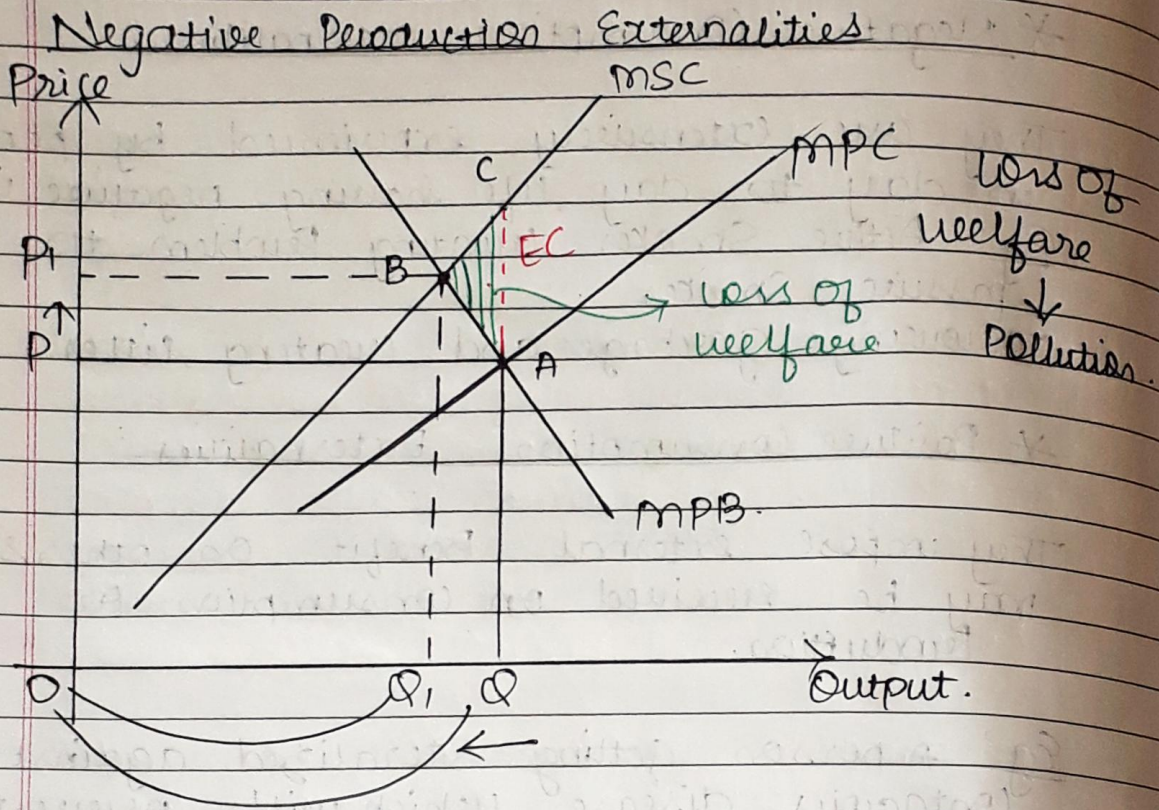 Negative Production Externalities
Price
MSC
C
MPC
Loss of
welfare
↓
Pollution.
P1
B
EC
loss of
welfare
↑
P
A
MPB.
O
Q1
Q
Output.
←